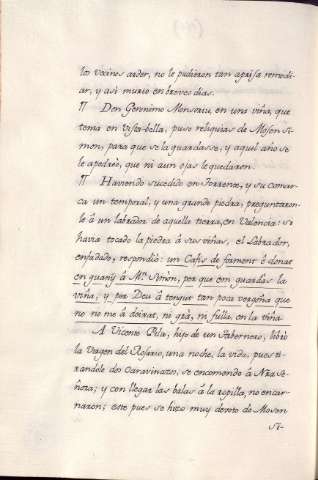 los vecinos arder, no le pudieron tan aprisa remedi-
ar, y asi murio en breves dias.
¶ Don Geronimo Monsoriu, en una viña, que
tenia en Vista-bella, puso reliquias de Mosen Si-
mon, para que se la guardasse, y aquel año se
le apedreò, que ni aun ojas le quedaron.
¶ Haviendo sucedido en Torrente, y su comar-
ca un temporal, y una grande piedra, preguntaron-
le â un labrador de aquella tierra, en Valencia: se
havia tocado la piedra â sus viñas, el Labrador,
enfadado, respondiò: un Cafis de forment ê donat
en guany â Mn. Simòn, per que em guardas la
viña, y per Deu â tengut tan poca vergoña que
no me â deixat, ni grà, ni fulla, en la viña
A Vicente Pila, hijo de un Tabernero, librò
la Virgen del Rosario, una noche, la vida, pues ti-
randole dos Caravinazos, se encomendò â Nra Se-
ñora; y con llegar las balas â la ropilla, no encar-
naron; este pues se hizo muy devoto de Mosen
Si-